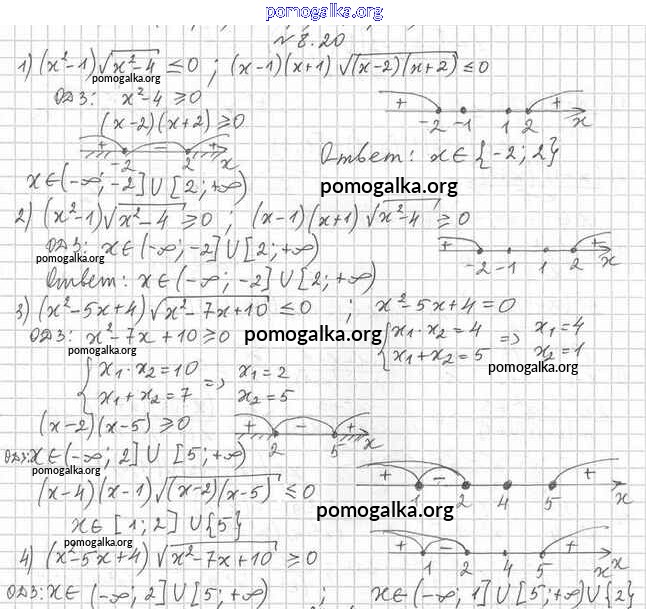 pomogalka.org
№ 8.20
1) (x²-1)√(x²-4) ≤ 0 ; (x-1)(x+1)√((x-2)(x+2)) ≤ 0
pomogalka.org
ОДЗ: x²-4 ≥ 0
+ -2 -1 1 2 + x
(x-2)(x+2) ≥ 0
+ -2 - 2 + x
Ответ: x∈{-2; 2}
x∈(-∞; -2]∪[2; +∞)
pomogalka.org
2) (x²-1)√(x²-4) ≥ 0 ; (x-1)(x+1)√(x²-4) ≥ 0
ОДЗ: x∈(-∞; -2]∪[2; +∞)
+ -2 -1 1 2 + x
pomogalka.org
Ответ: x∈(-∞; -2]∪[2; +∞)
3) (x²-5x+4)√(x²-7x+10) ≤ 0 ; x²-5x+4=0
ОДЗ: x²-7x+10 ≥ 0
pomogalka.org
{x₁·x₂=4 => x₁=4
{x₁+x₂=5 x₂=1
pomogalka.org
pomogalka.org
{x₁·x₂=10 => x₁=2
{x₁+x₂=7 x₂=5
(x-2)(x-5) ≥ 0
+ 2 - 5 + x
ОДЗ: x∈(-∞; 2]∪[5; +∞)
pomogalka.org
+ 1 - 2 4 5 + x
(x-4)(x-1)√((x-2)(x-5)) ≤ 0
pomogalka.org
x∈[1; 2]∪{5}
pomogalka.org
4) (x²-5x+4)√(x²-7x+10) ≥ 0
+ 1 - 2 4 5 + x x
ОДЗ: x∈(-∞; 2]∪[5; +∞) ; x∈(-∞; 1]∪[5; +∞)∪{2}